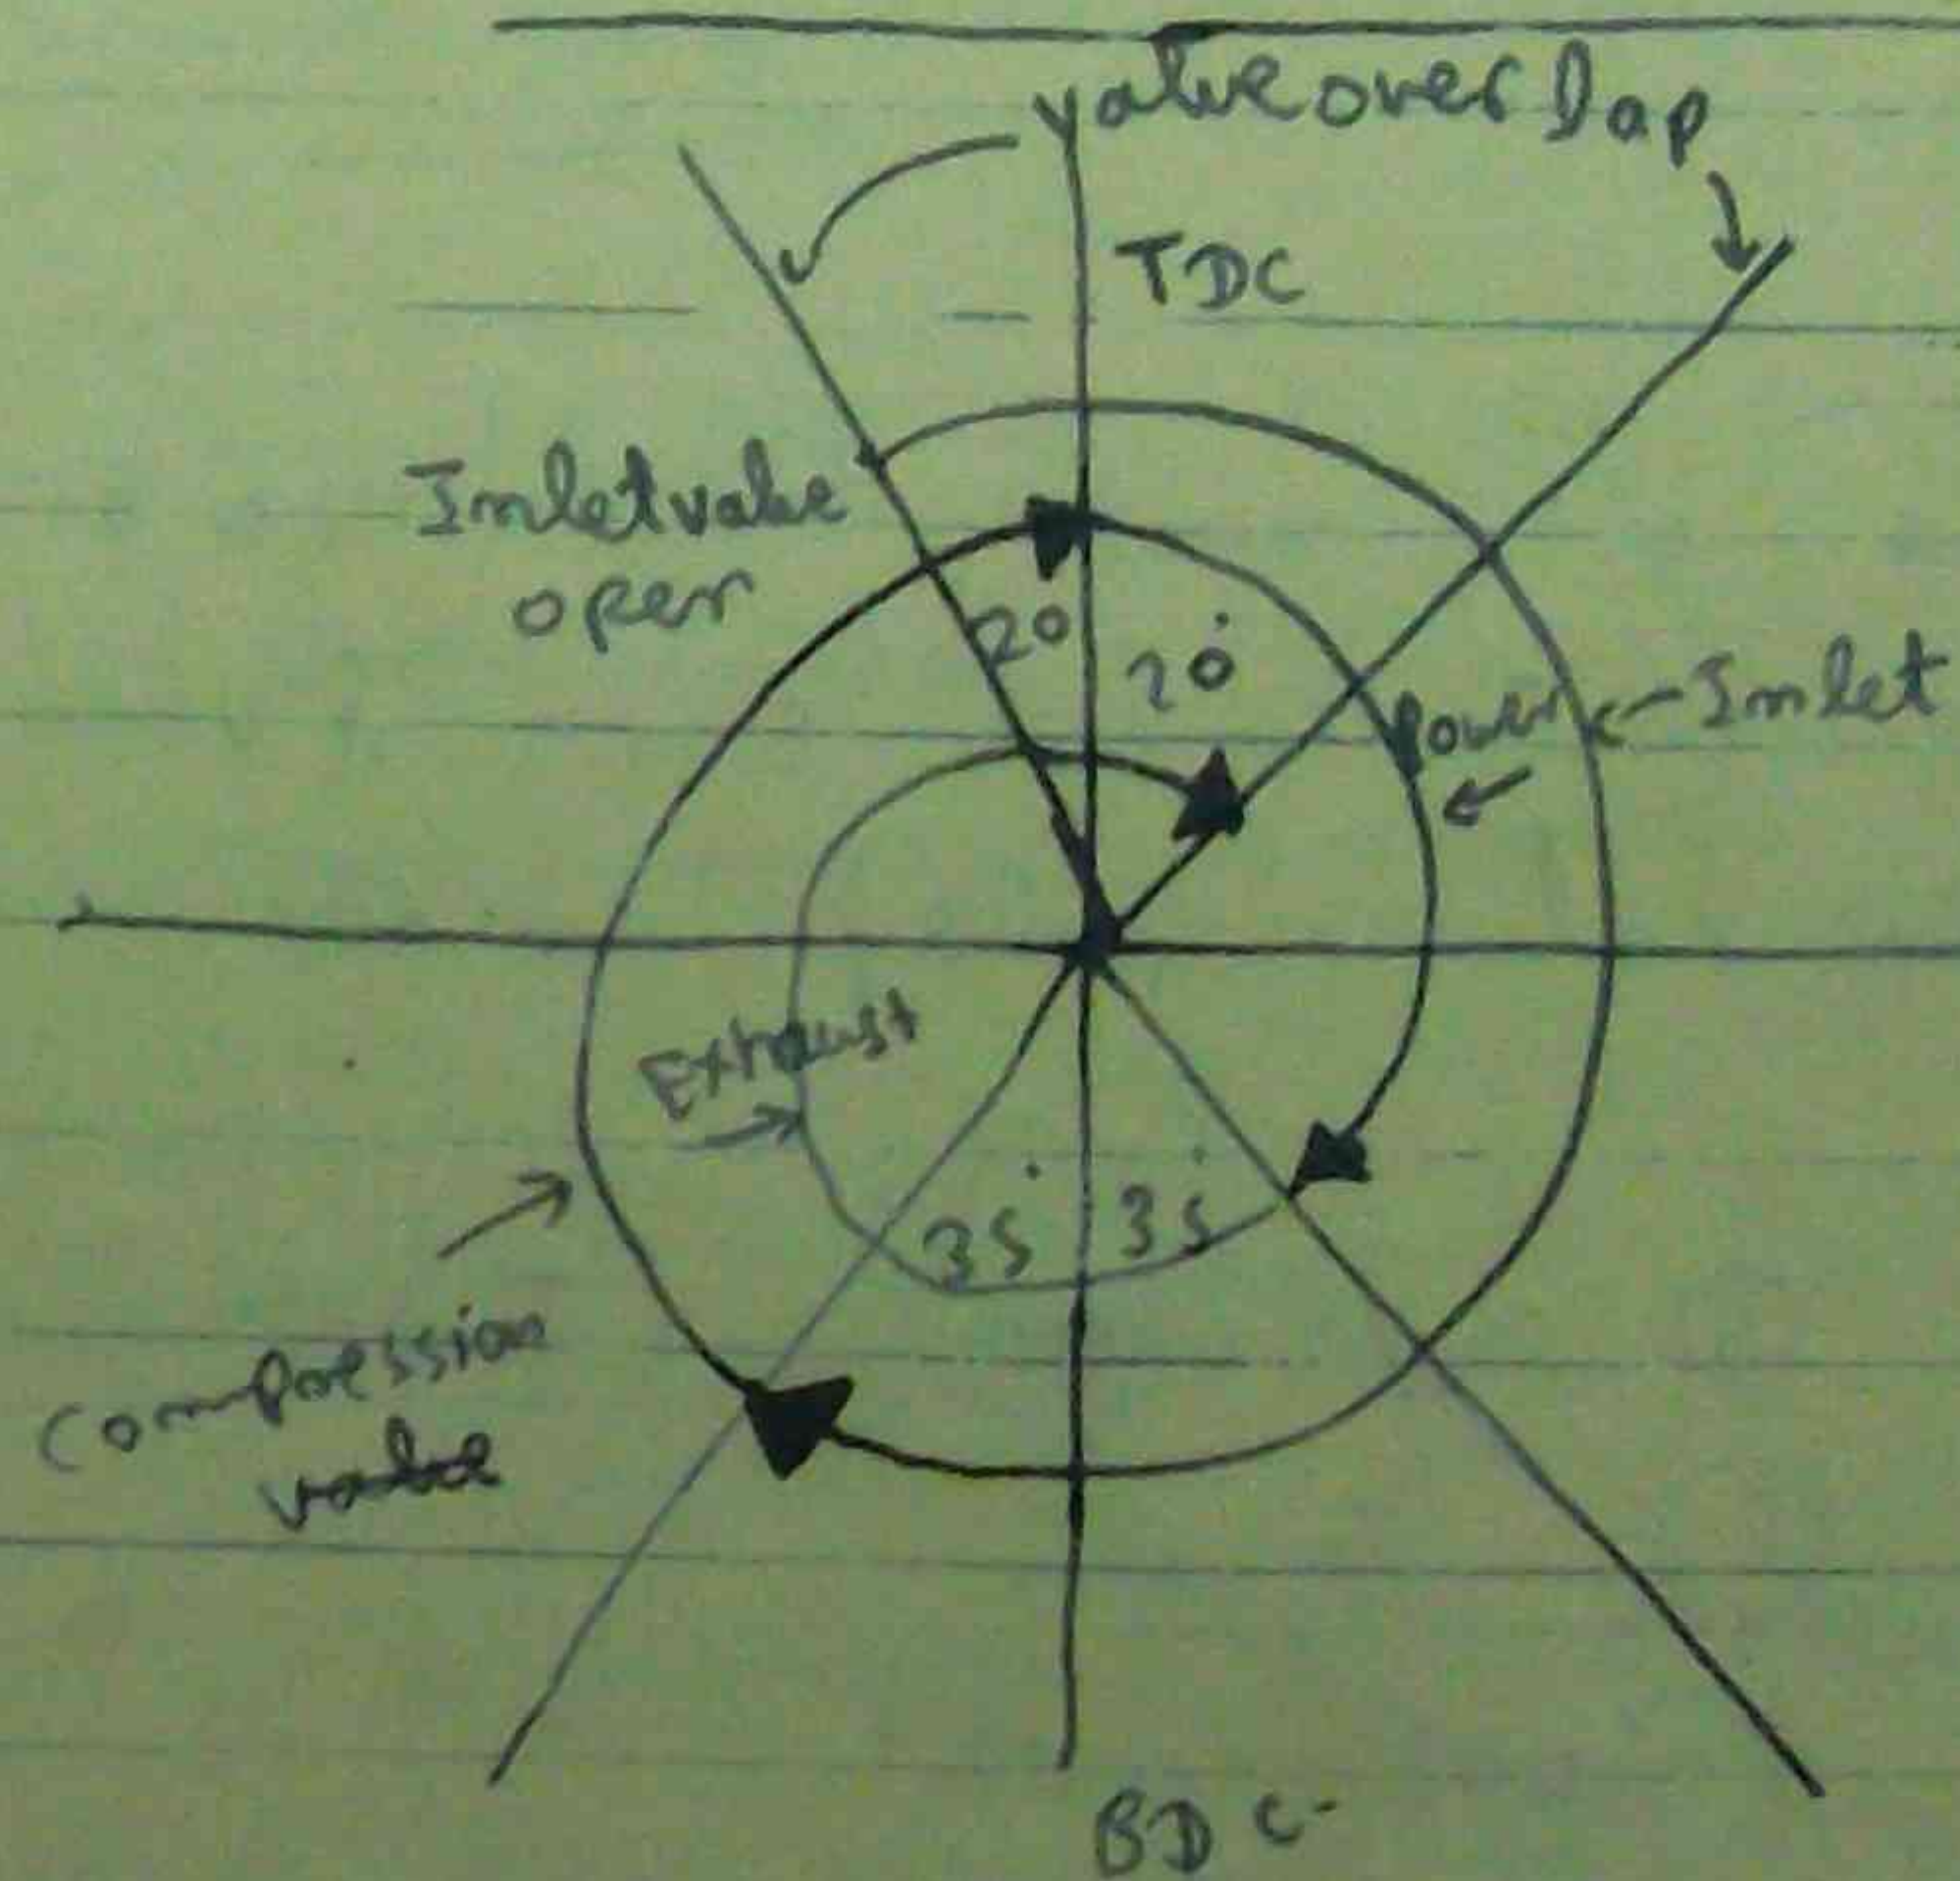 valve over lap
TDC
Inlet valve
open
20
20°
Power
Inlet
Exhaust
35°
35°
compression
valve
BDC